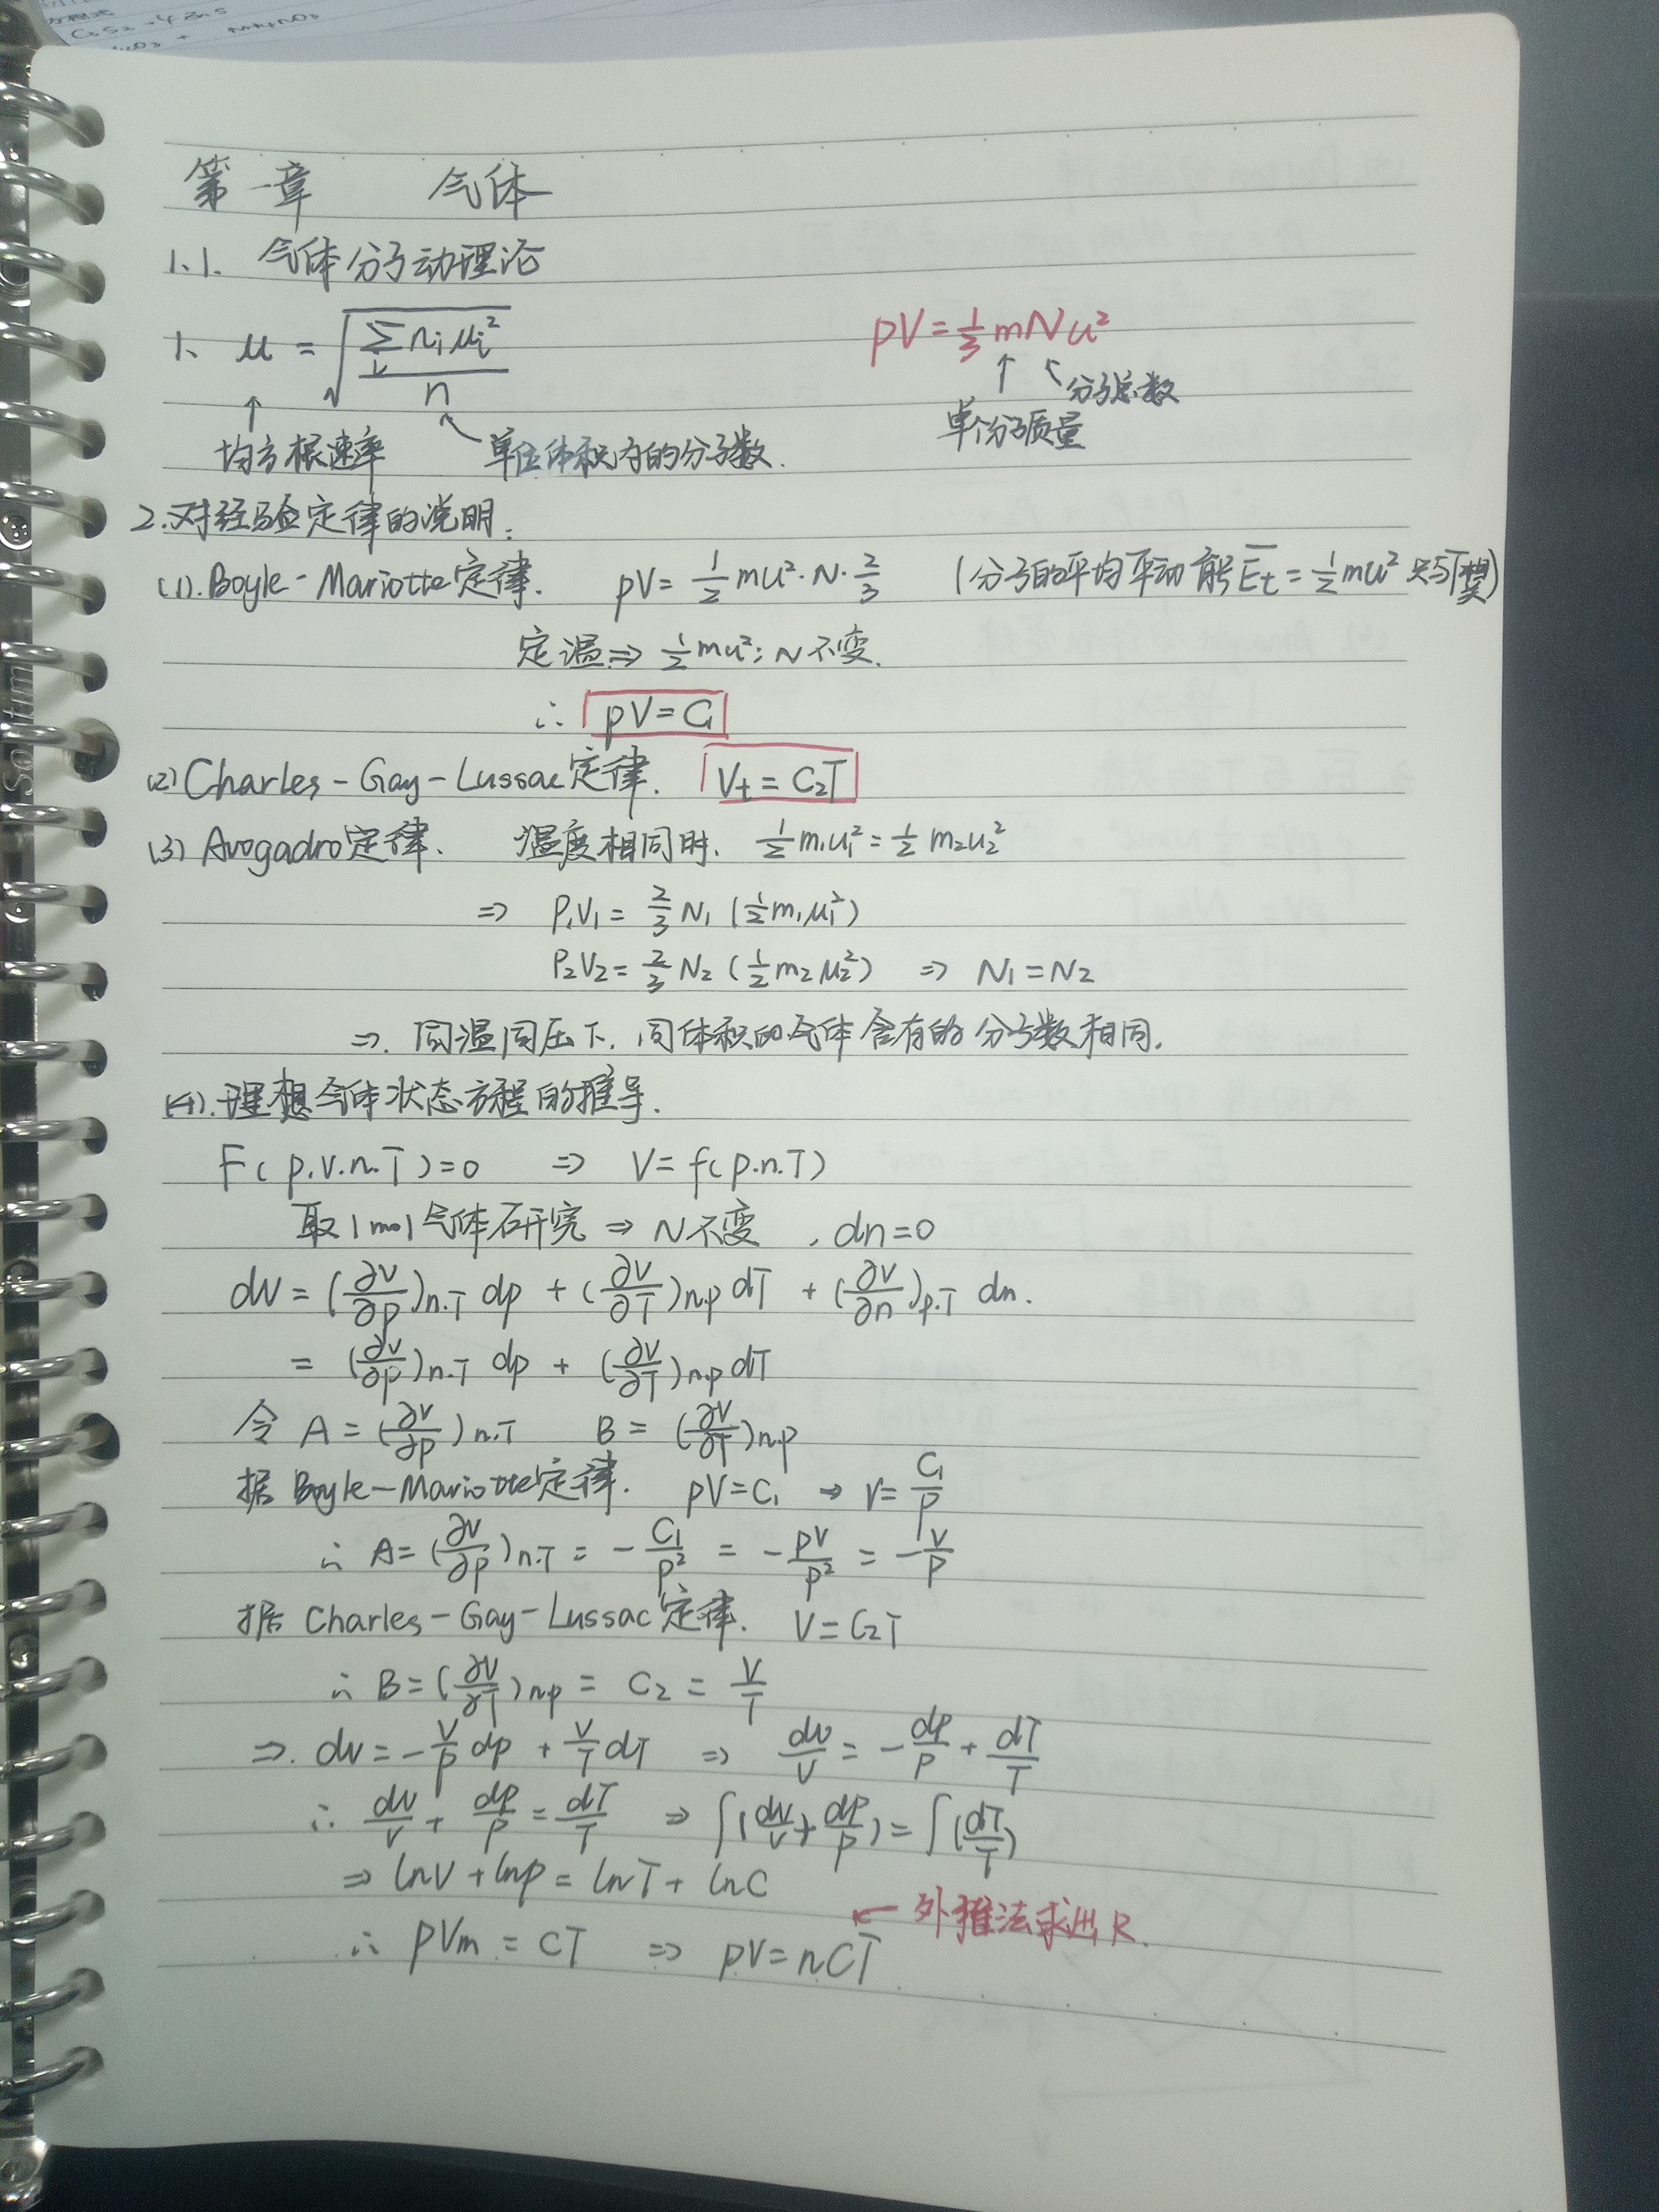 第一章 气体
1.1. 气体分子动理论
1、 u = √(∑ᵢ nᵢuᵢ² / n) pV = 1/3 mNu²
↑ 均方根速率 ↖ 单位体积内的分子数. ↑ 单个分子质量 ↖ 分子总数
2.对经验定律的说明:
(1). Boyle-Mariotte定律. pV = 1/2 mu²·N·2/3 (分子的平均平动能 Ēt = 1/2 mu² 只与T
定温 ⇒ 1/2 mu²; N不变.
∴ pV = C₁
(2) Charles-Gay-Lussac定律. Vt = C₂T
(3) Avogadro定律. 温度相同时. 1/2 m₁u₁² = 1/2 m₂u₂²
⇒ P₁V₁ = 2/3 N₁ (1/2 m₁u₁²)
P₂V₂ = 2/3 N₂ (1/2 m₂u₂²) ⇒ N₁ = N₂
⇒. 同温同压下. 同体积的气体含有的分子数相同.
(4). 理想气体状态方程的推导.
F(p.V.n.T)=0 ⇒ V = f(p.n.T)
取1mol气体研究 ⇒ N不变 , dn=0
dV = (∂V/∂p)n.T dp + (∂V/∂T)n.p dT + (∂V/∂n)p.T dn.
= (∂V/∂p)n.T dp + (∂V/∂T)n.p dT
令 A = (∂V/∂p)n.T B = (∂V/∂T)n.p
据 Boyle-Mariotte定律. pV = C₁ → V = C₁/p
∴ A = (∂V/∂p)n.T = -C₁/p² = -pV/p² = -V/p
据 Charles-Gay-Lussac定律. V = C₂T
∴ B = (∂V/∂T)n.p = C₂ = V/T
⇒. dV = -V/p dp + V/T dT ⇒ dV/V = -dp/p + dT/T
∴ dV/V + dp/p = dT/T ⇒ ∫(dV/V + dp/p) = ∫(dT/T)
⇒ lnV + lnp = lnT + lnC
← 外推法求出R.
∴ pVm = CT ⇒ pV = nCT